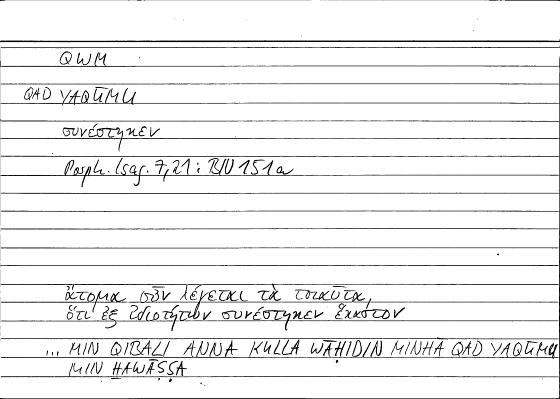 QWM
QAD YAQŪMU
συνέστηκεν
Porph. Isag. 7,21 : BN 151a
ἄτομα οὖν λέγεται τὰ τοιαῦτα,
ὅτι ἐξ ἰδιοτήτων συνέστηκεν ἕκαστον
... MIN QIBALI ANNA KULLA WĀḤIDIN MINHĀ QAD YAQŪMU
MIN ḪAWĀṢṢA